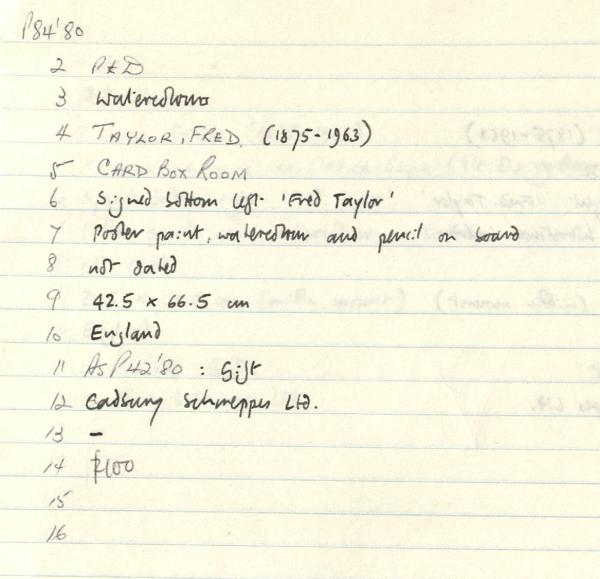 P84'80
2 P&D
3 Watercolours
4 TAYLOR, FRED. (1875-1963)
5 CARD BOX ROOM
6 Signed bottom left 'Fred Taylor'
7 Poster paint, watercolour and pencil on board
8 not dated
9 42.5 x 66.5 cm
10 England
11 As P42'80 : Gift
12 Cadbury Schweppes Ltd.
13 –
14 £100
15
16